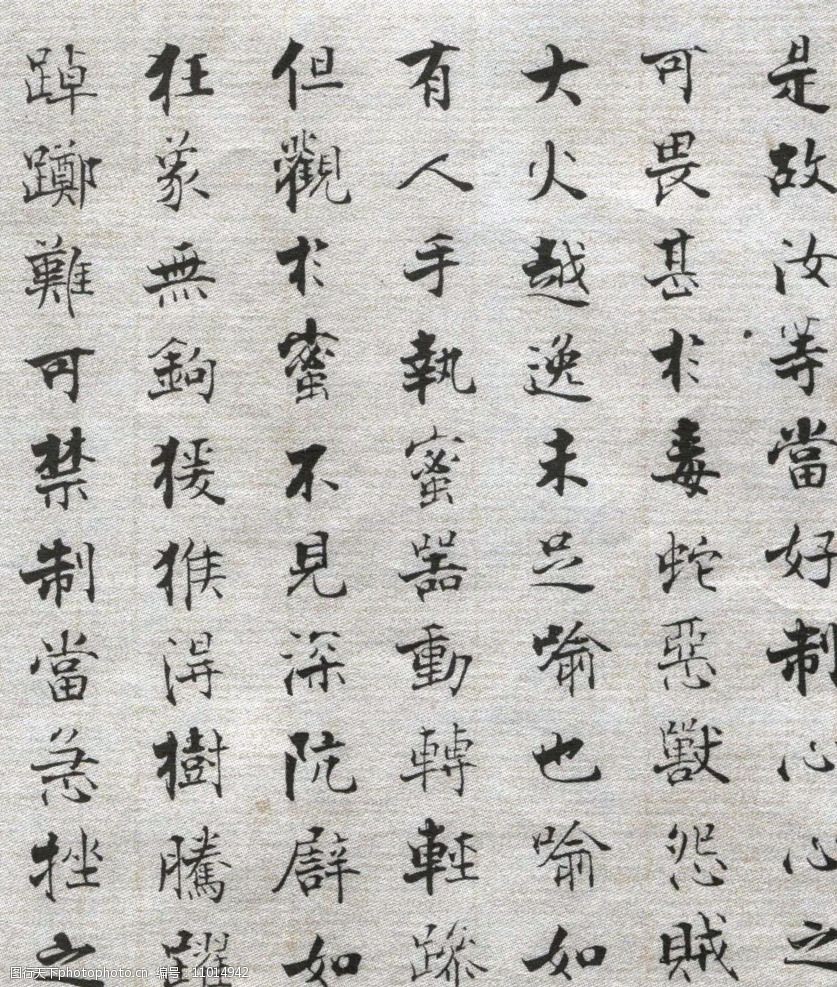 是故汝等當好制心心之
可畏甚於毒蛇惡獸怨賊
大火越逸未足喻也喻如
有人手執蜜器動轉輕躁
但觀於蜜不見深阬譬如
狂象無鉤猨猴得樹騰躍
踔躑難可禁制當急挫之
图行天下photophoto.cn 编号:11014942